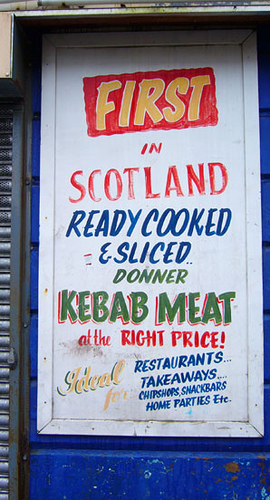 FIRST
IN
SCOTLAND
READY COOKED
& SLICED..
DONNER
KEBAB MEAT
at the RIGHT PRICE!
Ideal for
RESTAURANTS...
TAKEAWAYS,...
CHIPSHOPS, SNACKBARS
HOME PARTIES Etc.